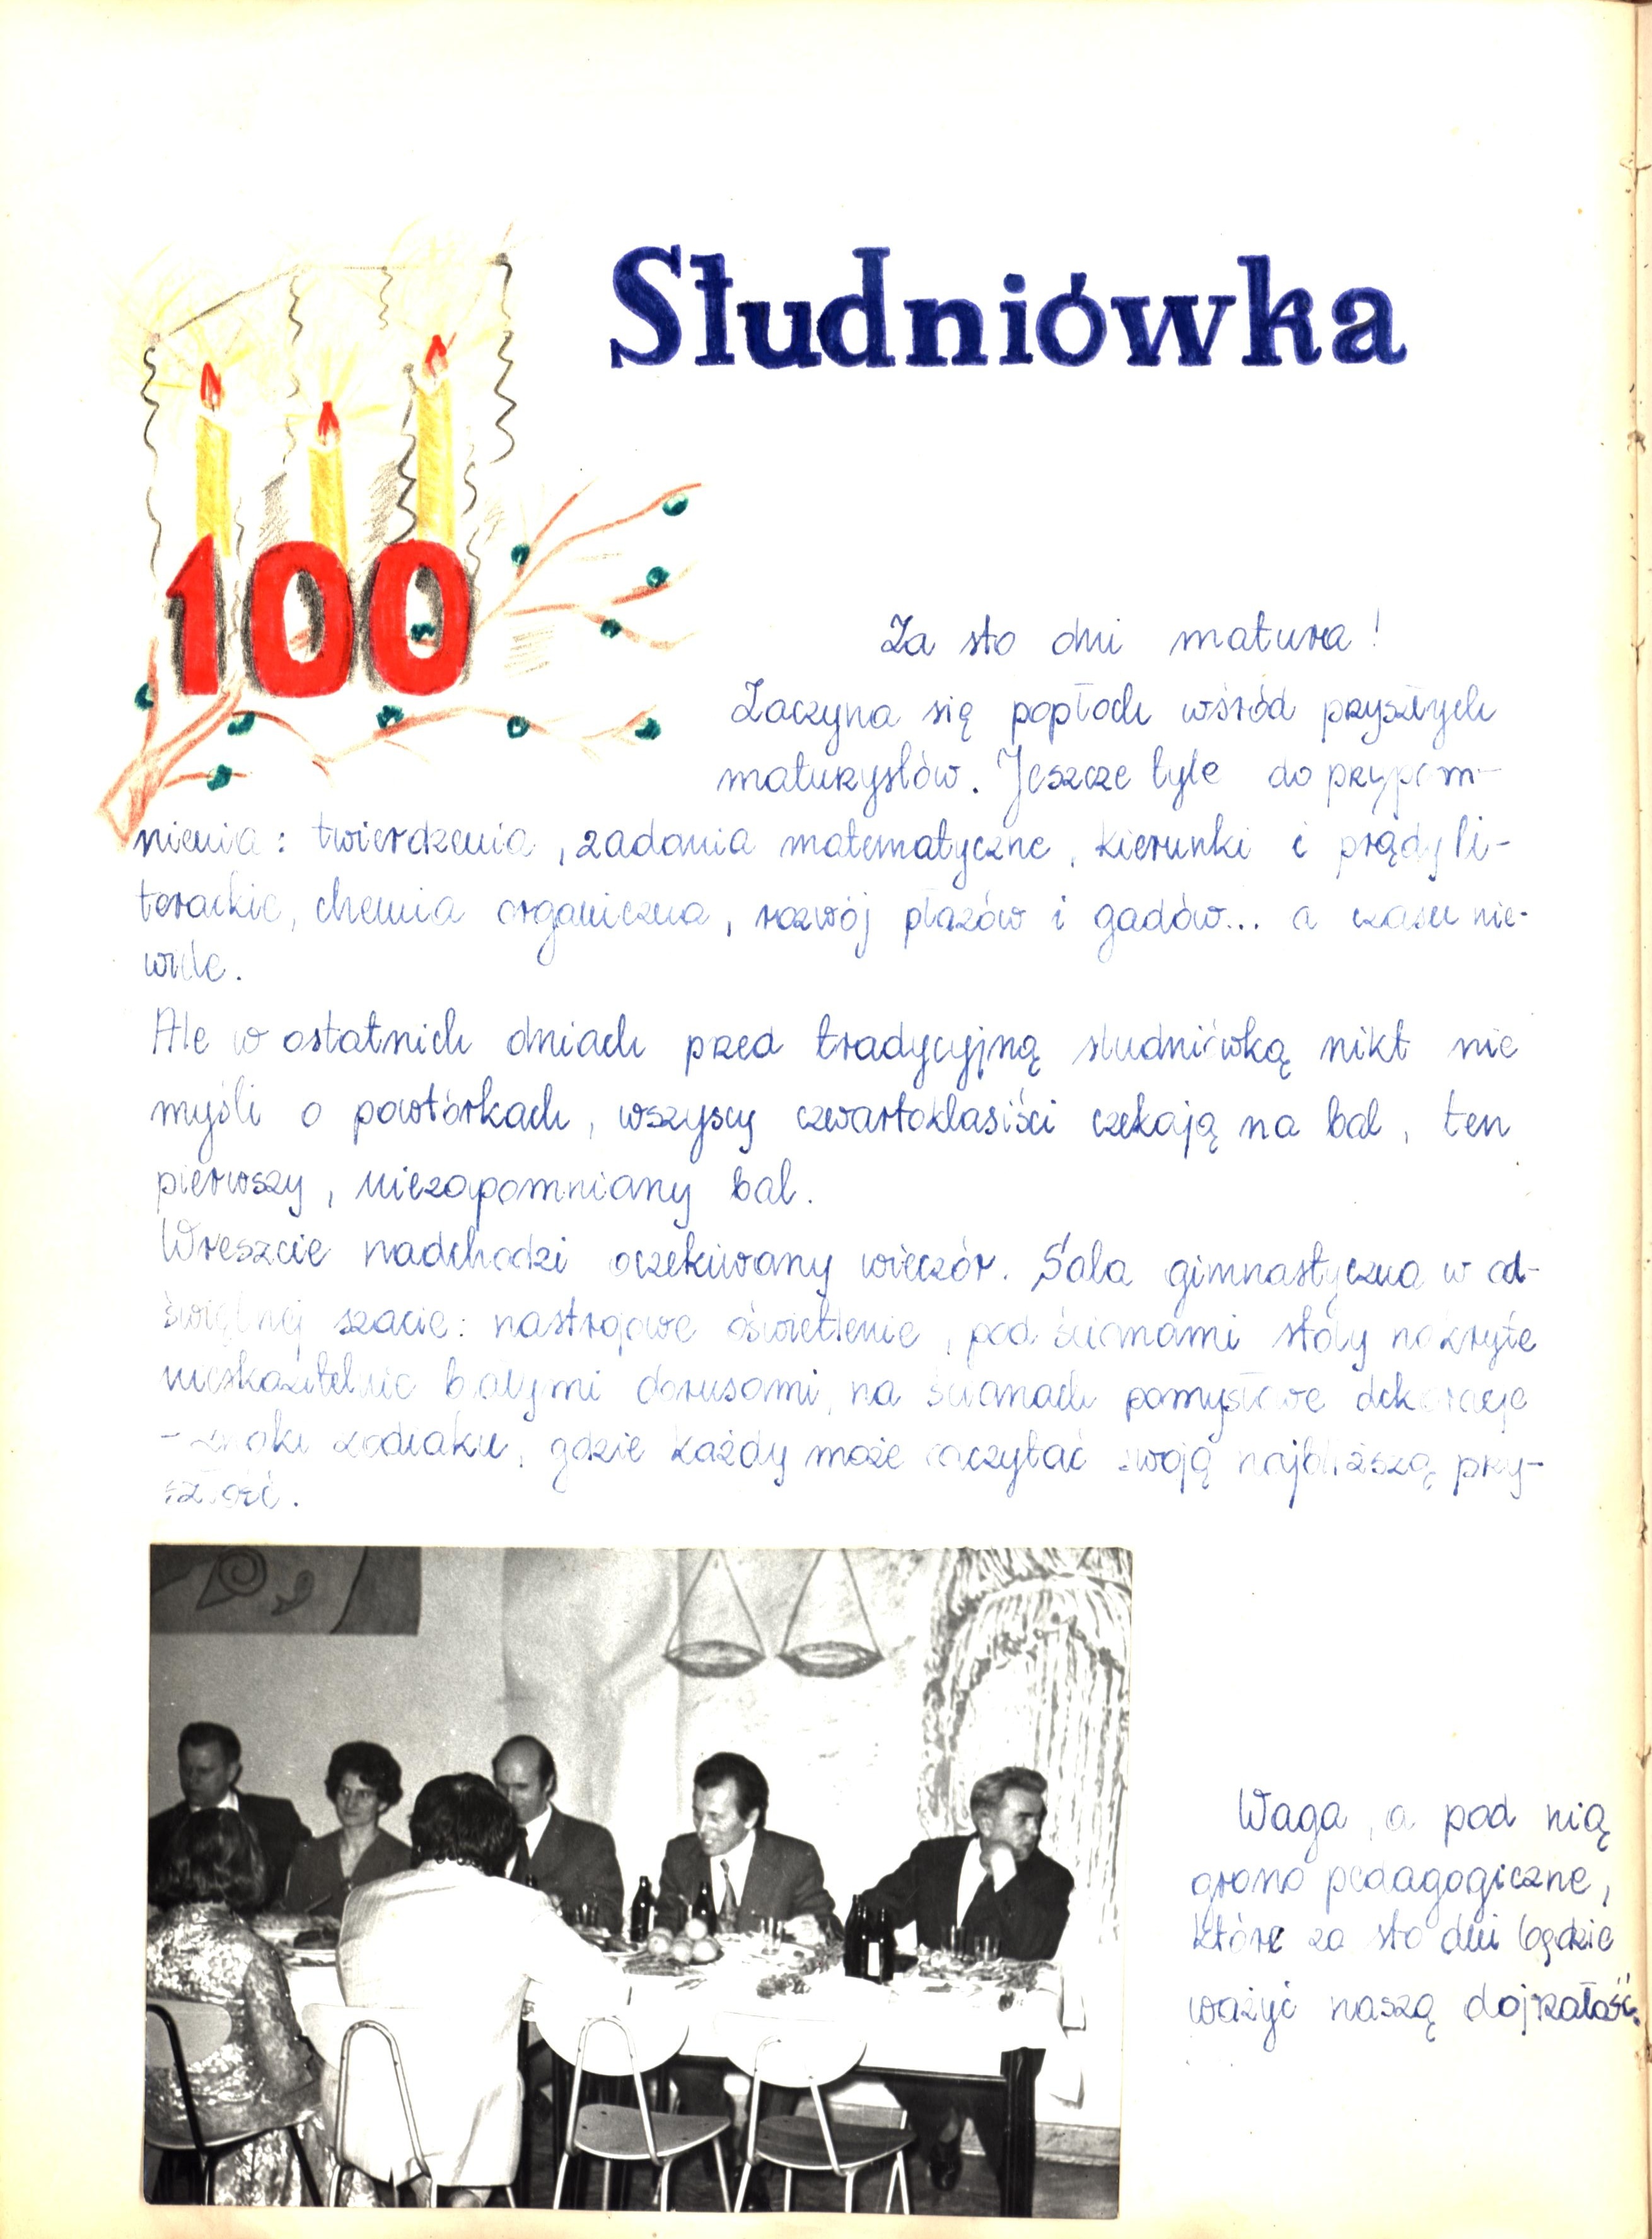 Studniówka
100
Za sto dni matura!
Zaczyna się popłoch wśród przyszłych
maturzystów. Jeszcze tyle do przypom-
nienia: twierdzenia, zadania matematyczne, kierunki i prądy li-
terackie, chemia organiczna, rozwój płazów i gadów... a czasu nie-
wiele.
Ale w ostatnich dniach przed tradycyjną studniówką nikt nie
myśli o powtórkach, wszyscy czwartoklasiści czekają na bal, ten
pierwszy, niezapomniany bal.
Wreszcie nadchodzi oczekiwany wieczór. Sala gimnastyczna w od-
świętnej szacie: nastrojowe oświetlenie, pod ścianami stoły nakryte
nieskazitelnie białymi obrusami, na ścianach pomysłowe dekoracje
- znaki zodiaku, gdzie każdy może odczytać swoją najbliższą przy-
szłość.
Waga, a pod nią
grono pedagogiczne,
które za sto dni będzie
ważyć naszą dojrzałość.